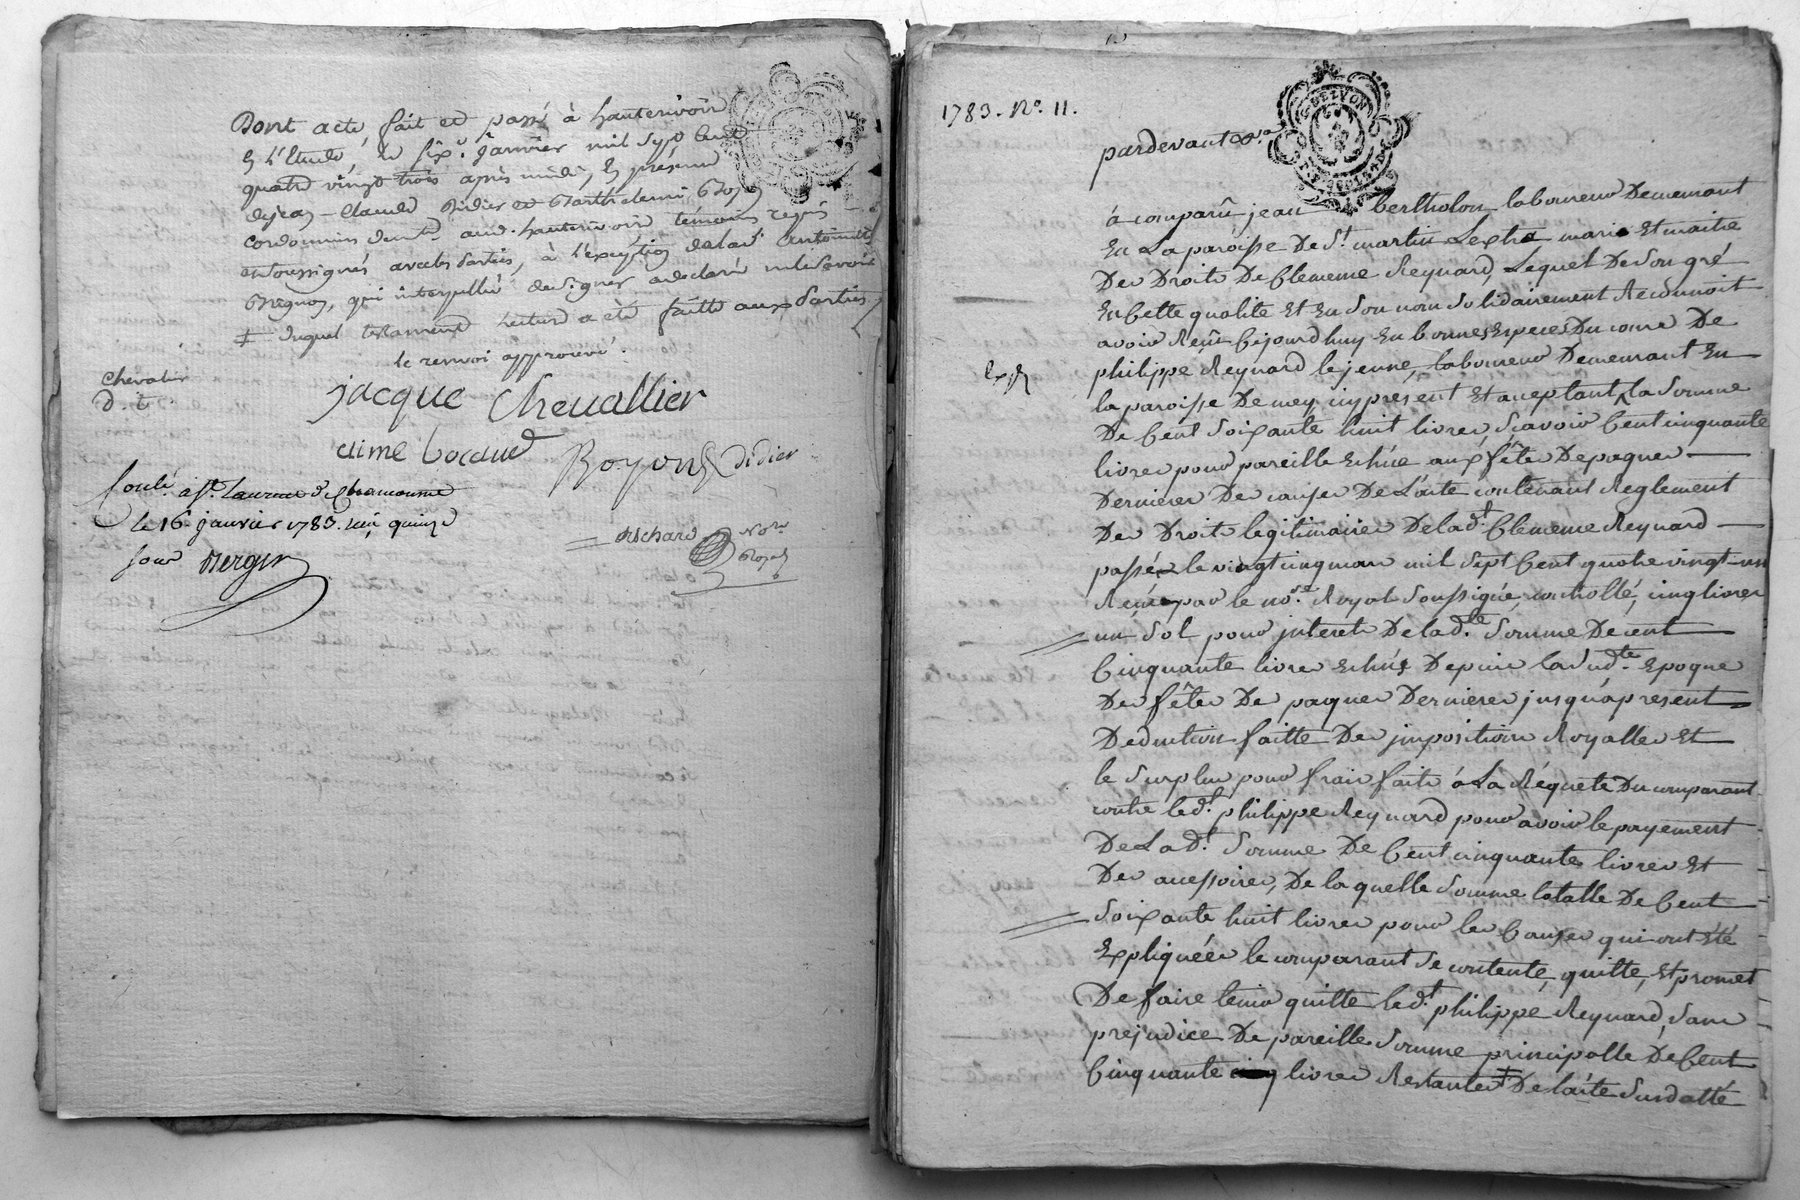 Dont acte, fait et passé à hauterivoire
En l'Etude, le six.e Janvier mil Sept Cent
quatre vingt trois après midi, En présence
de jean - Claude Didier et Barthelemi Royon
Cordonniers dem.ts aud. hauterivoire témoins requis
et soussignés avec les Parties, à l'exception de lad. antoinette
qui interpellée de Signer a declaré ne le Savoir
‡ duquel testament lecture a été faitte aux Parties
le renvoi approuvé.
Chevalier
D. t.
jacque Chevallier
aime
Royon Didier
Conlé. à St. Laurence de Chamousset
le 16 janvier 1783. reçu quinze
sous
Not.re
Royal
1783. No. 11.
GEN DE LYON
pardevant &.a
à comparû jean bertholon laboureur Demeurant
En La paroisse De St. martin Lestra mari Et maitre
Des Droits De Clemence Reynard, Lequel De Son gré
En Cette qualité Et En Son nom Solidairement Reconnoit
avoir Reçû Cejourd'huy En bonnes Especes Du cours De
philippe Reynard le jeune, laboureur Demeurant En
la paroisse De mey icy present Et acceptant, la Somme
De Cent Soixante huit livres, Scavoir Cent cinquante
livres pour pareille Echüe aux fêtes De paques
Dernieres Des causes De L'acte contenant Reglement
Des Droits legitimaires De lad.t Clemence Reynard
passé le vingt cinq mars mil Sept Cent quatre vingt-un
Reçu par le no.re Royal Soussigné, controllé, cinq livres
un Sol pour jnterets De lad.te Somme De cent
Cinquante livres Echûs Depuis la Sud.te Epoque
Des fêtes De paques Dernieres jusqu'apresent
Deduction faitte Des jmpositions Royalles Et
le Surplus pour frais faits à La Réquete Du comparant
contre led.t philippe Reynard pour avoir le payement
De La d.t Somme De Cent cinquante livres Et
Des accessoires, De la quelle Somme totalle De Cent
Soixante huit livres pour les Causes qui ont Eté
Expliquées le comparant Se contente, quitte, Et promet
De faire tenir quitte led.t philippe Reynard, Sans
prejudice De pareille Somme principalle De Cent
Cinquante livres Restantes ‡ De l'acte Sus datté